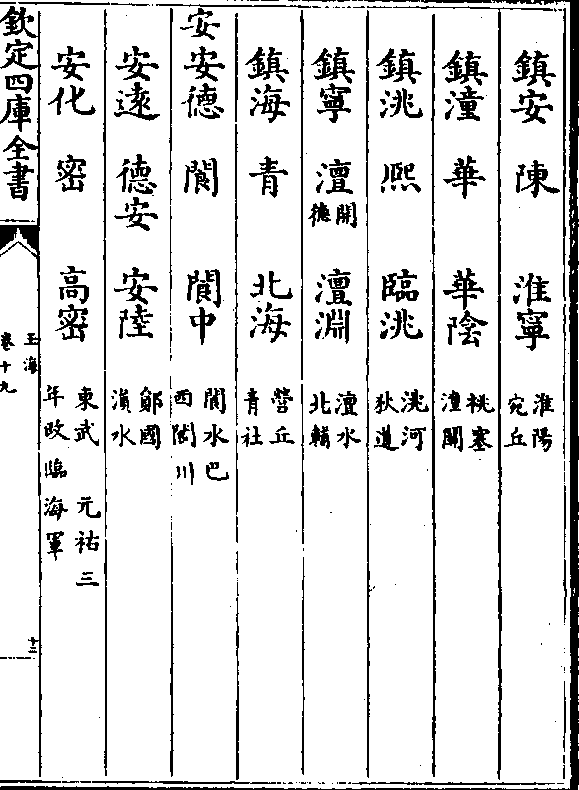 鎮安 陳 淮寧 淮陽宛丘
鎮潼 華 華陰 桃塞潼關
鎮洮 熙 臨洮 洮河狄道
鎮寧 澶開德 澶淵 澶水北輔
鎮海 青 北海 營丘青社
安安德 閬 閬中 閬水巴西閬川
安遠 德安 安陸 鄖國溳水
安化 密 高密 東武 元祐三年改臨海軍
欽定四庫全書
玉海
卷十九
十三